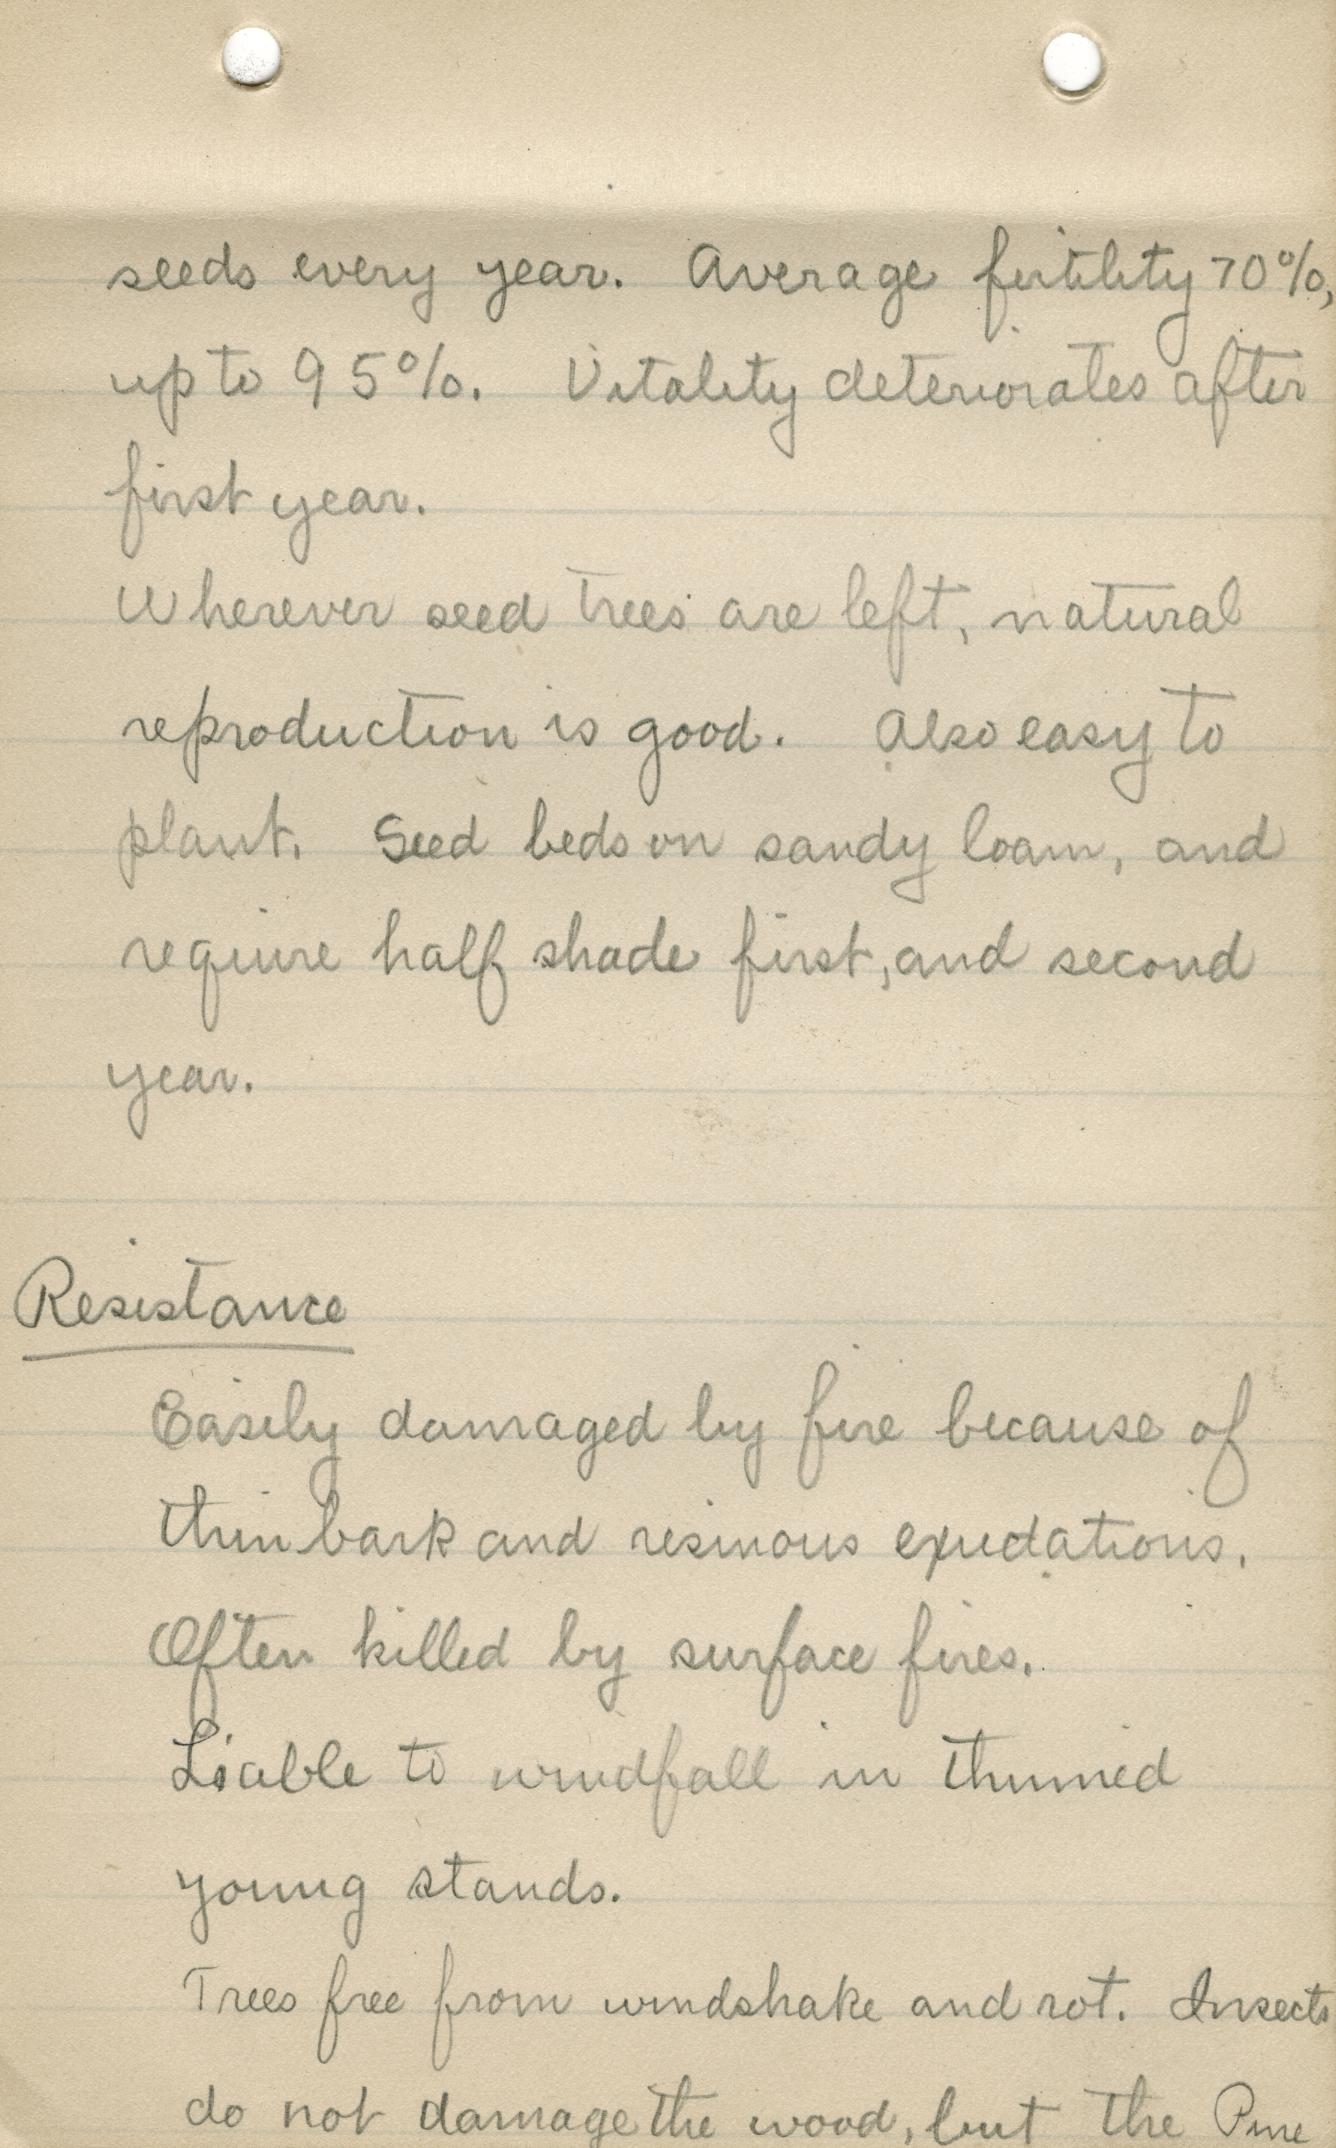 seeds every year. Average fertility 70%,
up to 95%. Vitality deteriorates after
first year.
Wherever seed trees are left, natural
reproduction is good. Also easy to
plant. Seed beds on sandy loam, and
require half shade first, and second
year.
Resistance
Easily damaged by fire because of
thin bark and resinous exudations.
Often killed by surface fires.
Liable to windfall in thinned
young stands.
Trees free from windshake and rot. Insects
do not damage the wood, but the Pine